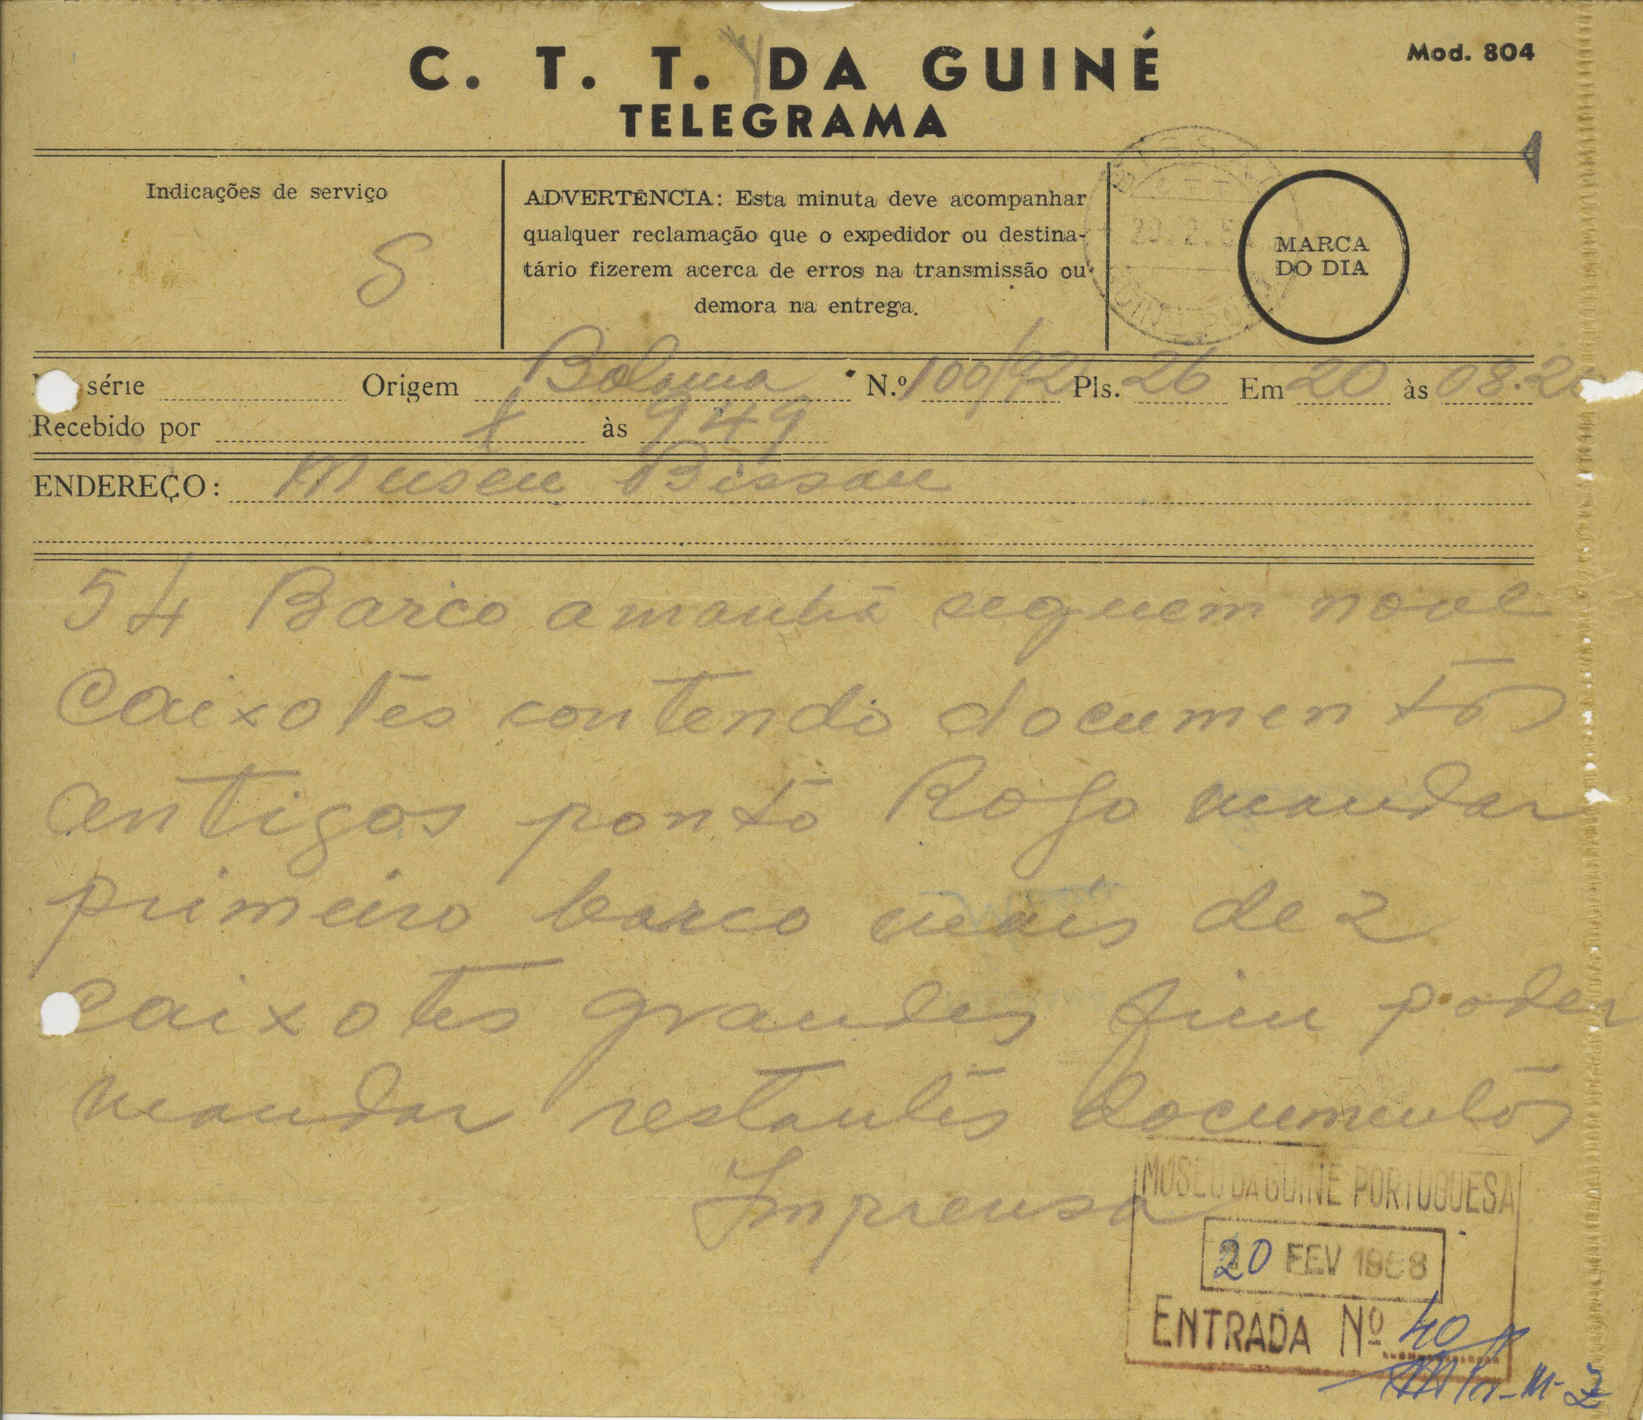 C. T. T. DA GUINÉ
Mod. 804
TELEGRAMA
Indicações de serviço
S
ADVERTÊNCIA: Esta minuta deve acompanhar
qualquer reclamação que o expedidor ou destina-
tário fizerem acerca de erros na transmissão ou
demora na entrega.
MARCA
DO DIA
série Origem Bolama N.º 100/92 Pls. 26 Em 20 às 08.2
Recebido por às 949
ENDEREÇO: Museu Bissau
54 Barco amanhã seguem nove
caixotes contendo documentos
antigos ponto Rogo mandar
primeiro barco mais de 2
caixotes grandes fim poder
mandar restantes documentos
Imprensa
MUSEU DA GUINÉ PORTUGUESA
20 FEV 1958
ENTRADA Nº 40